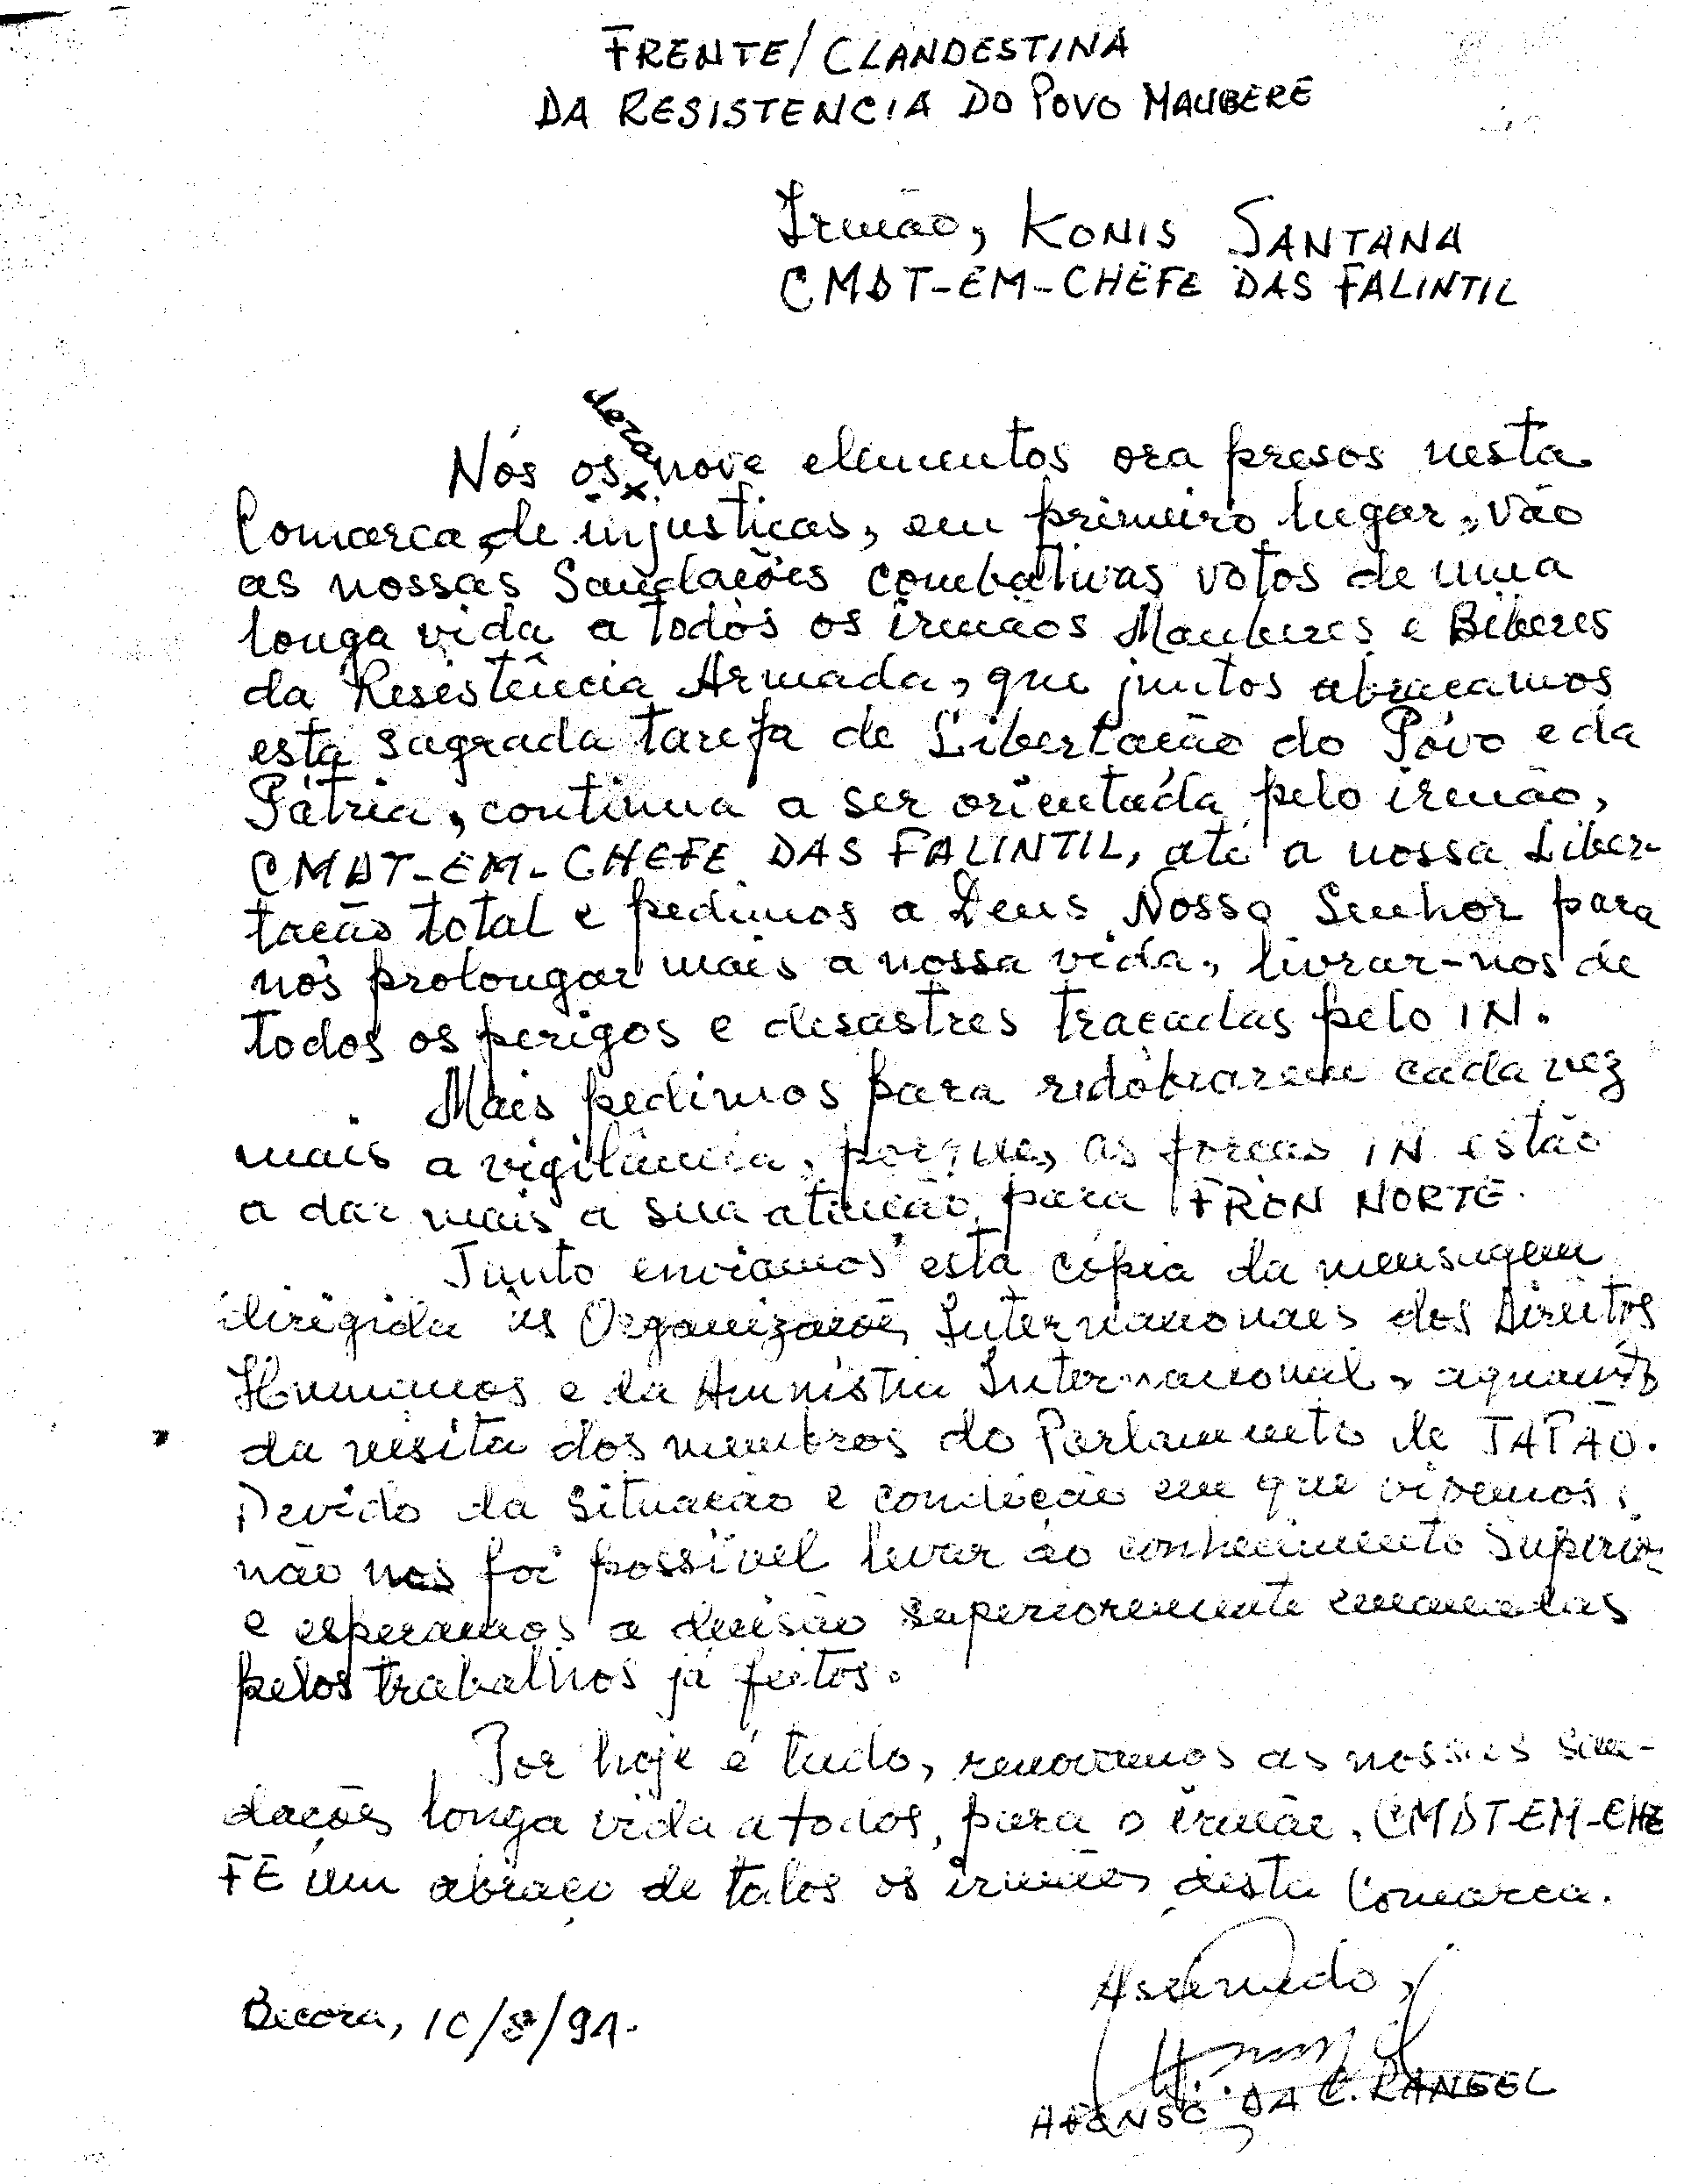 FRENTE/CLANDESTINA
DA RESISTENCIA DO POVO MAUBERE
Irmão, KONIS SANTANA
CMDT-EM-CHEFE DAS FALINTIL
deza
Nós os nove elementos ora presos nesta
Comarca de injusticas, em primeiro lugar, vão
as nossas Saudações combativas votos de uma
longa vida a todos os irmãos Mauberes e Biberes
da Resistência Armada, que juntos abraçamos
esta sagrada tarefa de Libertação do Povo e da
Pátria, continua a ser orientada pelo irmão,
CMDT-EM-CHEFE DAS FALINTIL, até a nossa Liber-
tação total e pedimos a Deus Nosso Senhor para
nos prolongar mais a nossa vida, livrar-nos de
todos os perigos e desastres traçadas pelo IN.
Mais pedimos para redobrarem cada vez
mais a vigilância, porque, as forças IN estão
a dar mais a sua atenção para FRON NORTE.
Junto enviamos esta cópia da mensagem
dirigida às Organizações Internacionais dos Direitos
Humanos e da Amnistia Internacional, aquando
da visita dos membros do Parlamento de JAPÃO.
Devido da situação e condição em que vivemos,
não nos foi possível levar ao conhecimento Superior
e esperamos a decisão superiormente emanadas
pelos trabalhos já feitos.
Por hoje é tudo, renovamos as nossas sau-
dações longa vida a todos, para o irmão, CMDT-EM-CHE
FE um abraço de todos os irmãos desta Comarca.
Becora, 10/8/91.
AFONSO DA C. RANGEL